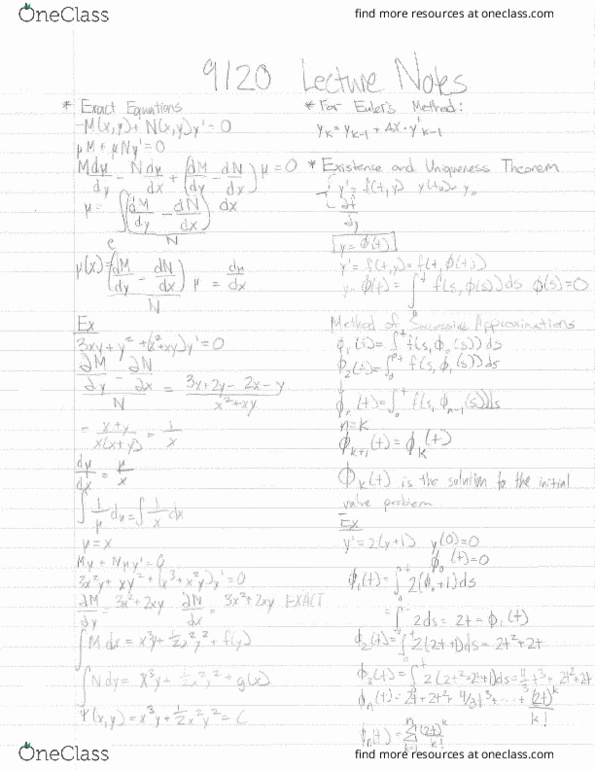 OneClass
find more resources at oneclass.com
9/20 Lecture Notes
* Exact Equations
M(x,y)+ N(x,y)y'=0
μM + μNy'=0
M dμ/dy - N dμ/dx + (dM/dy - dN/dx) μ = 0
μ = e ∫ (dM/dy - dN/dx)/N dx
μ(x) = (dM/dy - dN/dx)/N μ = du/dx
Ex
3xy+y² +(x²+xy)y'=0
(∂M/∂y - ∂N/∂x)/N = (3x+2y-2x-y)/(x²+xy)
= (x+y)/(x(x+y)) = 1/x
du/dx = μ/x
∫ 1/μ du = ∫ 1/x dx
μ=x
Mμ + Nμy'=0
3x²y+ xy² + (x³+x²y)y'=0
∂M/∂y = 3x²+2xy ∂N/∂x = 3x²+2xy EXACT
∫M dx = x³y+ 1/2x²y² + f(y)
∫N dy = x³y+ 1/2x²y² + g(x)
Ψ(x,y) = x³y + 1/2x²y² = C
* For Euler's Method:
yk = yk-1 + Δx · y'k-1
* Existence and Uniqueness Theorem
y' = f(t,y) y(t₀)= y₀
∂f/∂y
y = Φ(t)
y' = f(t,y) = f(t, ϕ(t))
y= ϕ(t) = ∫₀ᵗ f(s, ϕ(s)) ds ϕ(s)=0
Method of Successive Approximations
ϕ₁(t) = ∫₀ᵗ f(s, ϕ₀(s)) ds
ϕ₂(t) = ∫₀ᵗ f(s, ϕ₁(s)) ds
ϕn(t) = ∫₀ᵗ f(s, ϕn-1(s)) ds
n=k
ϕk+1(t) = ϕk(t)
ϕk(t) is the solution to the initial
value problem
Ex
y' = 2(y+1) y(0)=0
ϕ₀(t)=0
ϕ₁(t) = ∫₀ᵗ 2(ϕ₀+1)ds
= ∫₀ᵗ 2ds = 2t = ϕ₁(t)
ϕ₂(t) = ∫₀ᵗ 2(2t+1)ds = 2t²+2t
ϕ₃(t) = ∫₀ᵗ 2(2t²+2t+1)ds = 4/3 t³ + 2t²+2t
ϕn(t) = 2t + 2t² + 4/3t³ + ... + (2t)ᵏ/k!
ϕn(t) = Σ (2t)ᵏ/k!
OneClass
find more resources at oneclass.com
find more resources at oneclass.com